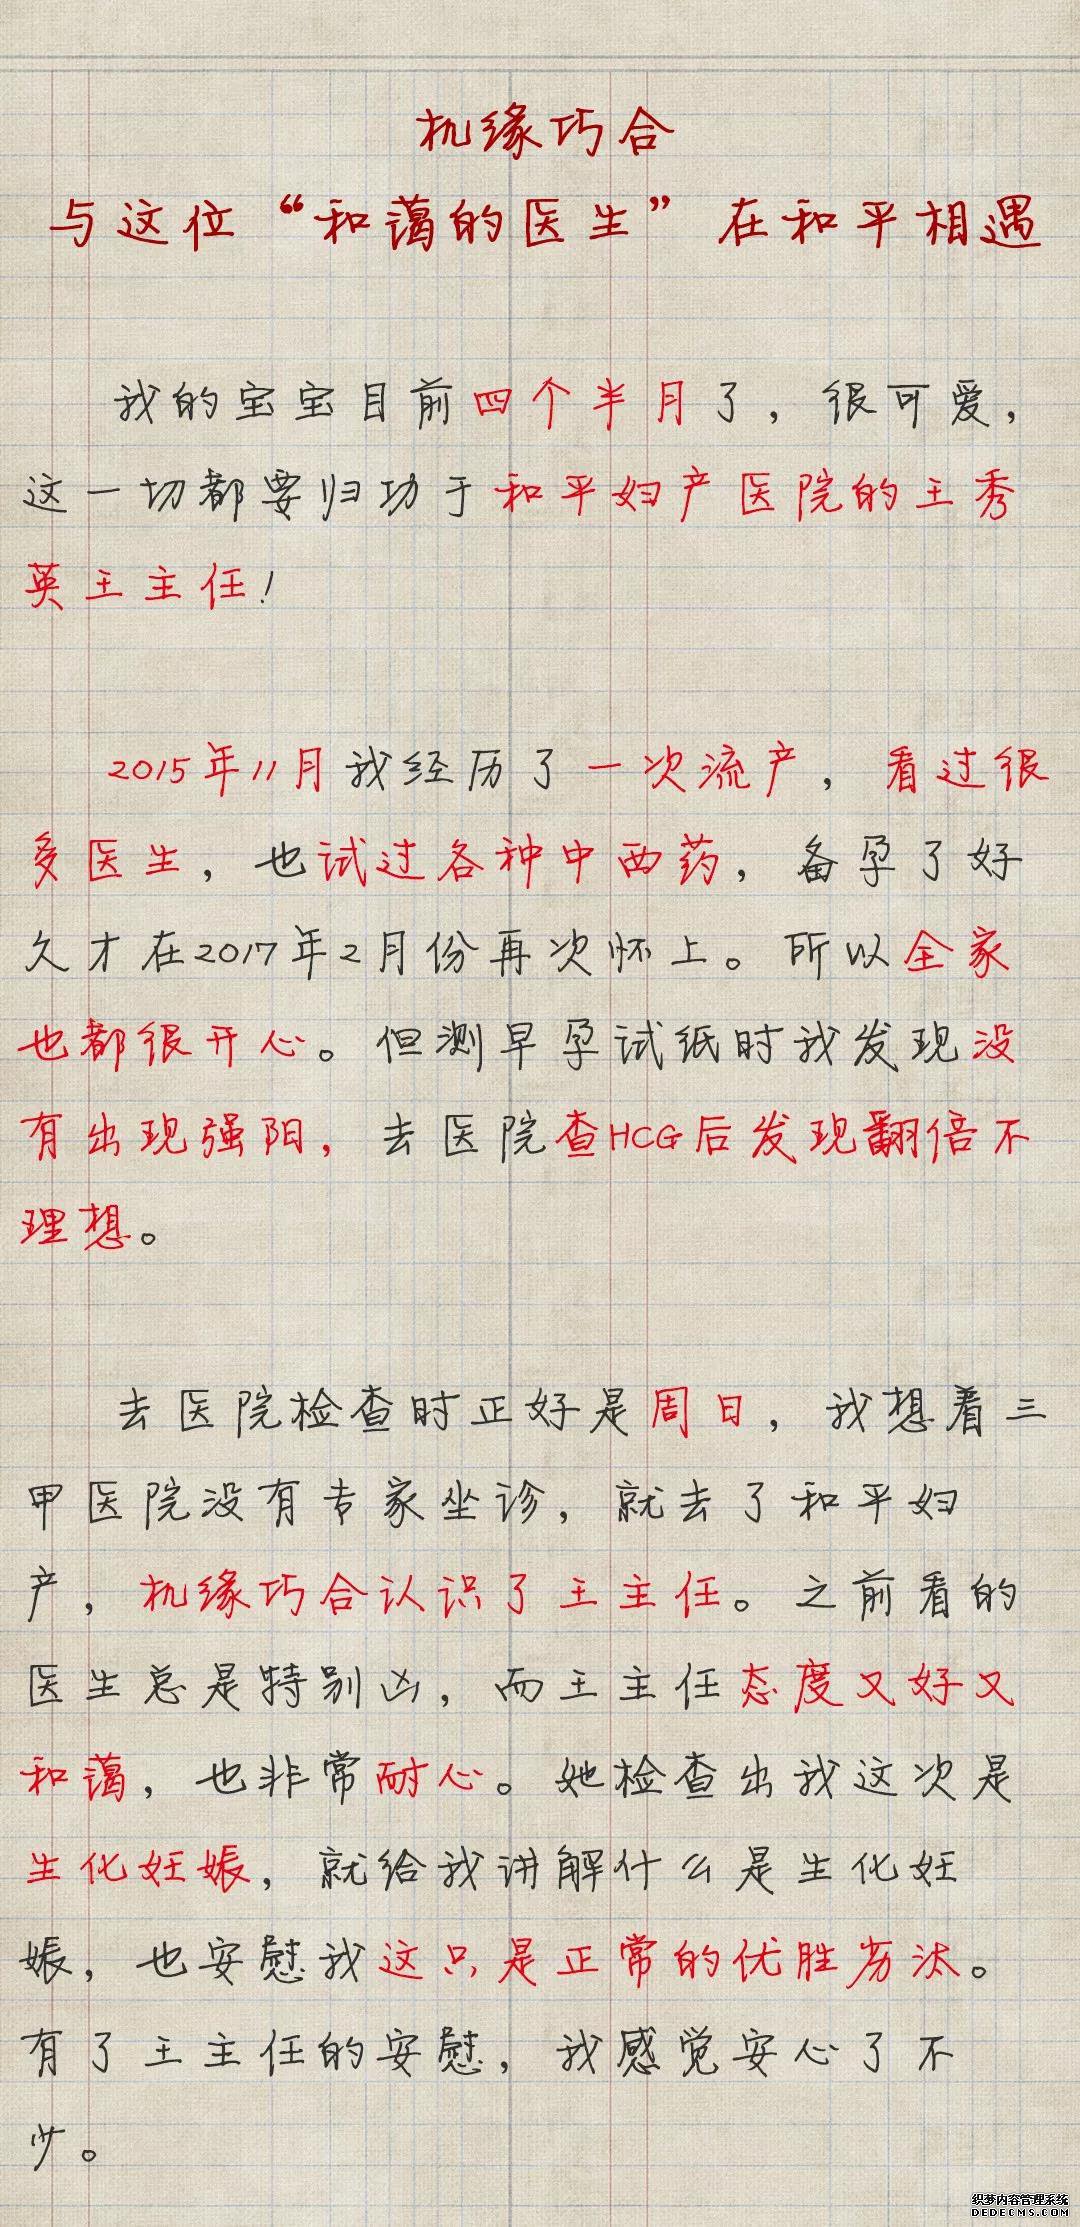 机缘巧合
与这位“和蔼的医生”在和平相遇
我的宝宝目前四个半月了，很可爱，
这一切都要归功于和平妇产医院的王秀
英王主任！
2015年11月我经历了一次流产，看过很
多医生，也试过各种中西药，备孕了好
久才在2017年2月份再次怀上。所以全家
也都很开心。但测早孕试纸时我发现没
有出现强阳，去医院查HCG后发现翻倍不
理想。
去医院检查时正好是周日，我想着三
甲医院没有专家坐诊，就去了和平妇
产，机缘巧合认识了王主任。之前看的
医生总是特别凶，而王主任态度又好又
和蔼，也非常耐心。她检查出我这次是
生化妊娠，就给我讲解什么是生化妊
娠，也安慰我这只是正常的优胜劣汰。
有了王主任的安慰，我感觉安心了不
少。
织梦内容管理系统
DEDECMS.COM